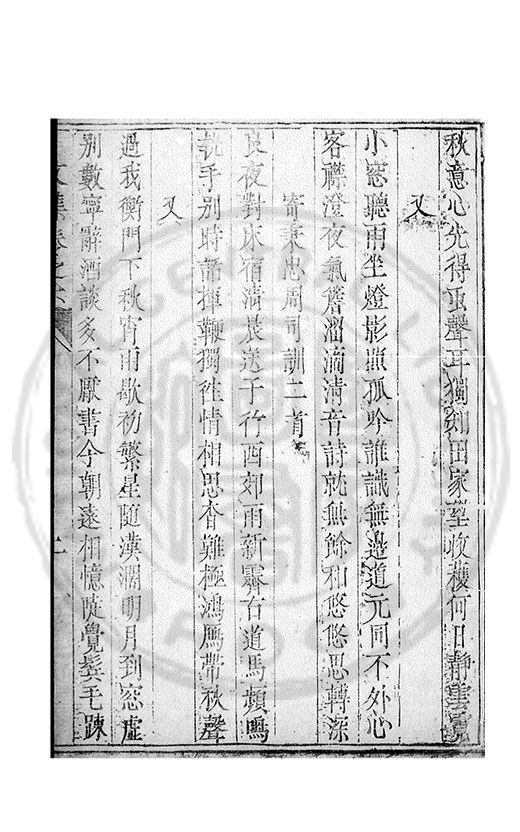 秋意心先得虫聲耳獨知田家望收穫何日靜雲
又
小窓聽雨坐燈影照孤吟誰識無邊道元同不外心
客襟澄夜氣簷溜滴清音詩就無餘和悠悠思轉深
寄秉忠周司訓二首
良夜對床宿清晨送子行西郊雨新霽古道馬頻鳴
執手別時語揮鞭獨徃情相思杳難極鴻鴈帶秋聲
又
過我衡門下秋宵雨歇初繁星隨漢濶明月到窓虛
別數寧辭酒談多不厭書今朝遠相憶陡覺鬂毛踈
文集卷之六